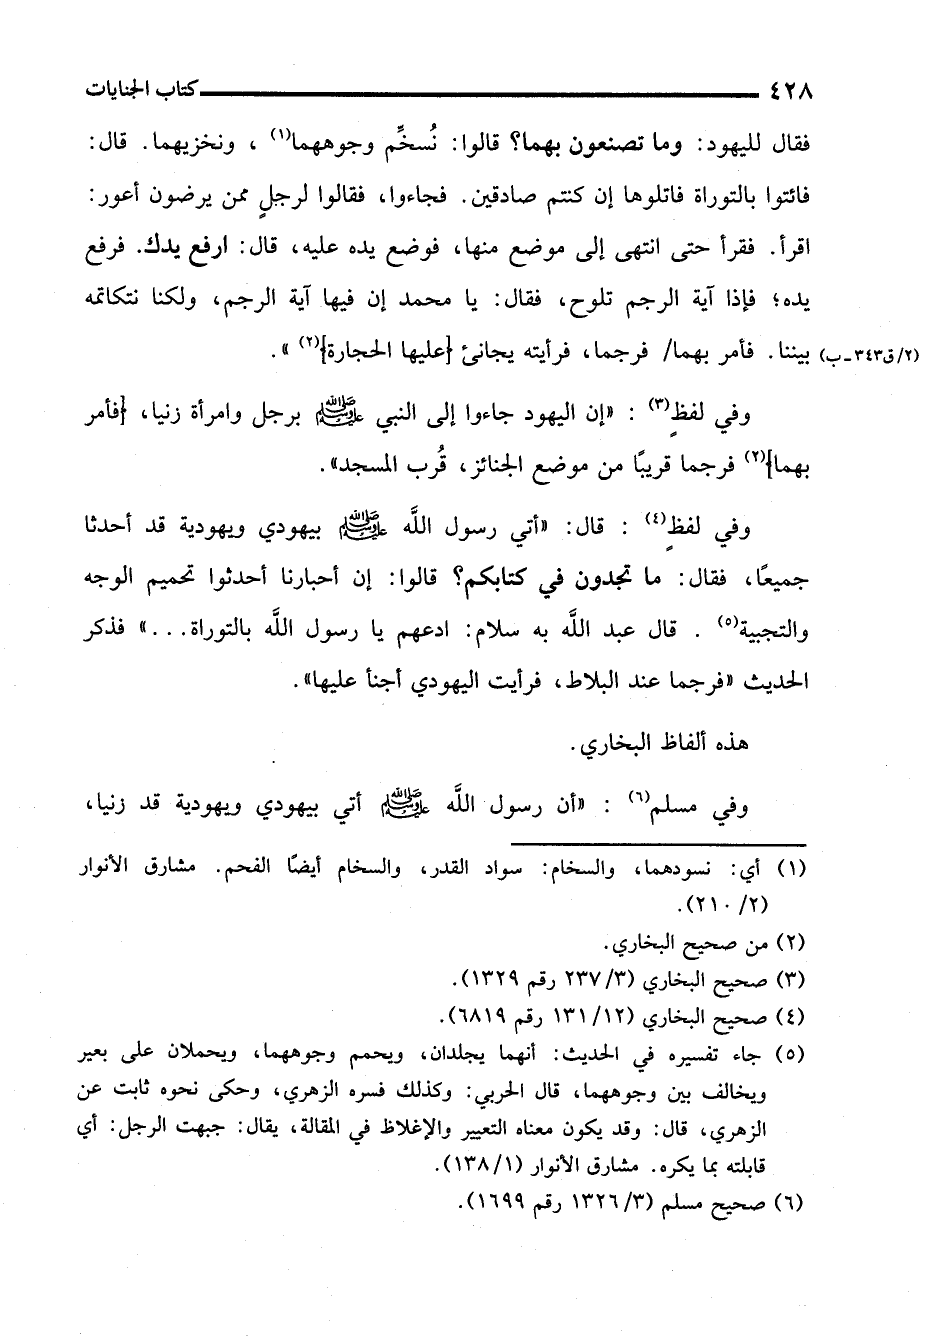 ٤٢٨ كتاب الجنايات
فقال لليهود: وما تصنعون بهما؟ قالوا: نُسخِّم وجوههما(١) ، ونخزيهما. قال:
فائتوا بالتوراة فاتلوها إن كنتم صادقين. فجاءوا، فقالوا لرجلٍ ممن يرضون أعور:
اقرأ. فقرأ حتى انتهى إلى موضع منها، فوضع يده عليه، قال: ارفع يدك. فرفع
يده؛ فإذا آية الرجم تلوح، فقال: يا محمد إن فيها آية الرجم، ولكنا نتكاتمه
بيننا. فأمر بهما/ فرجما، فرأيته يجانئ {عليها الحجارة}(٢) ». (٢/ق٣٤٣-ب)
وفي لفظٍ(٣) : «إن اليهود جاءوا إلى النبي ﷺ برجل وامرأة زنيا، {فأمر
بهما}(٢) فرجما قريبًا من موضع الجنائز، قُرب المسجد».
وفي لفظٍ(٤) : قال: «أتي رسول اللَّه ﷺ بيهودي ويهودية قد أحدثا
جميعًا، فقال: ما تجدون في كتابكم؟ قالوا: إن أحبارنا أحدثوا تحميم الوجه
والتجبية(٥) . قال عبد اللَّه به سلام: ادعهم يا رسول اللَّه بالتوراة...» فذكر
الحديث «فرجما عند البلاط، فرأيت اليهودي أجنأ عليها».
هذه ألفاظ البخاري.
وفي مسلم(٦) : «أن رسول اللَّه ﷺ أتي بيهودي ويهودية قد زنيا،
(١) أي: نسودهما، والسخام: سواد القدر، والسخام أيضًا الفحم. مشارق الأنوار
(٢/ ٢١٠).
(٢) من صحيح البخاري.
(٣) صحيح البخاري (٣/ ٢٣٧ رقم ١٣٢٩).
(٤) صحيح البخاري (١٢/ ١٣١ رقم ٦٨١٩).
(٥) جاء تفسيره في الحديث: أنهما يجلدان، ويحمم وجوههما، ويحملان على بعير
ويخالف بين وجوههما، قال الحربي: وكذلك فسره الزهري، وحكى نحوه ثابت عن
الزهري، قال: وقد يكون معناه التعيير والإغلاظ في المقالة، يقال: جبهت الرجل: أي
قابلته بما يكره. مشارق الأنوار (١/ ١٣٨).
(٦) صحيح مسلم (٣/ ١٣٢٦ رقم ١٦٩٩).